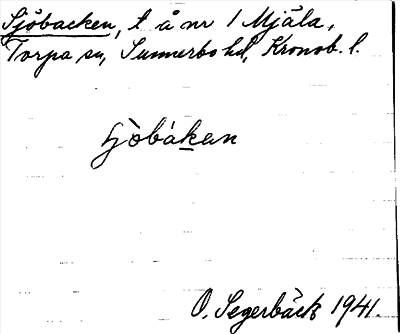 Sjöbacken, t å nr 1 Mjäla,
Torpa sn, Sunnerbo hd, Kronob. l.
ʃöbàkan
O. Segerbäck 1941.